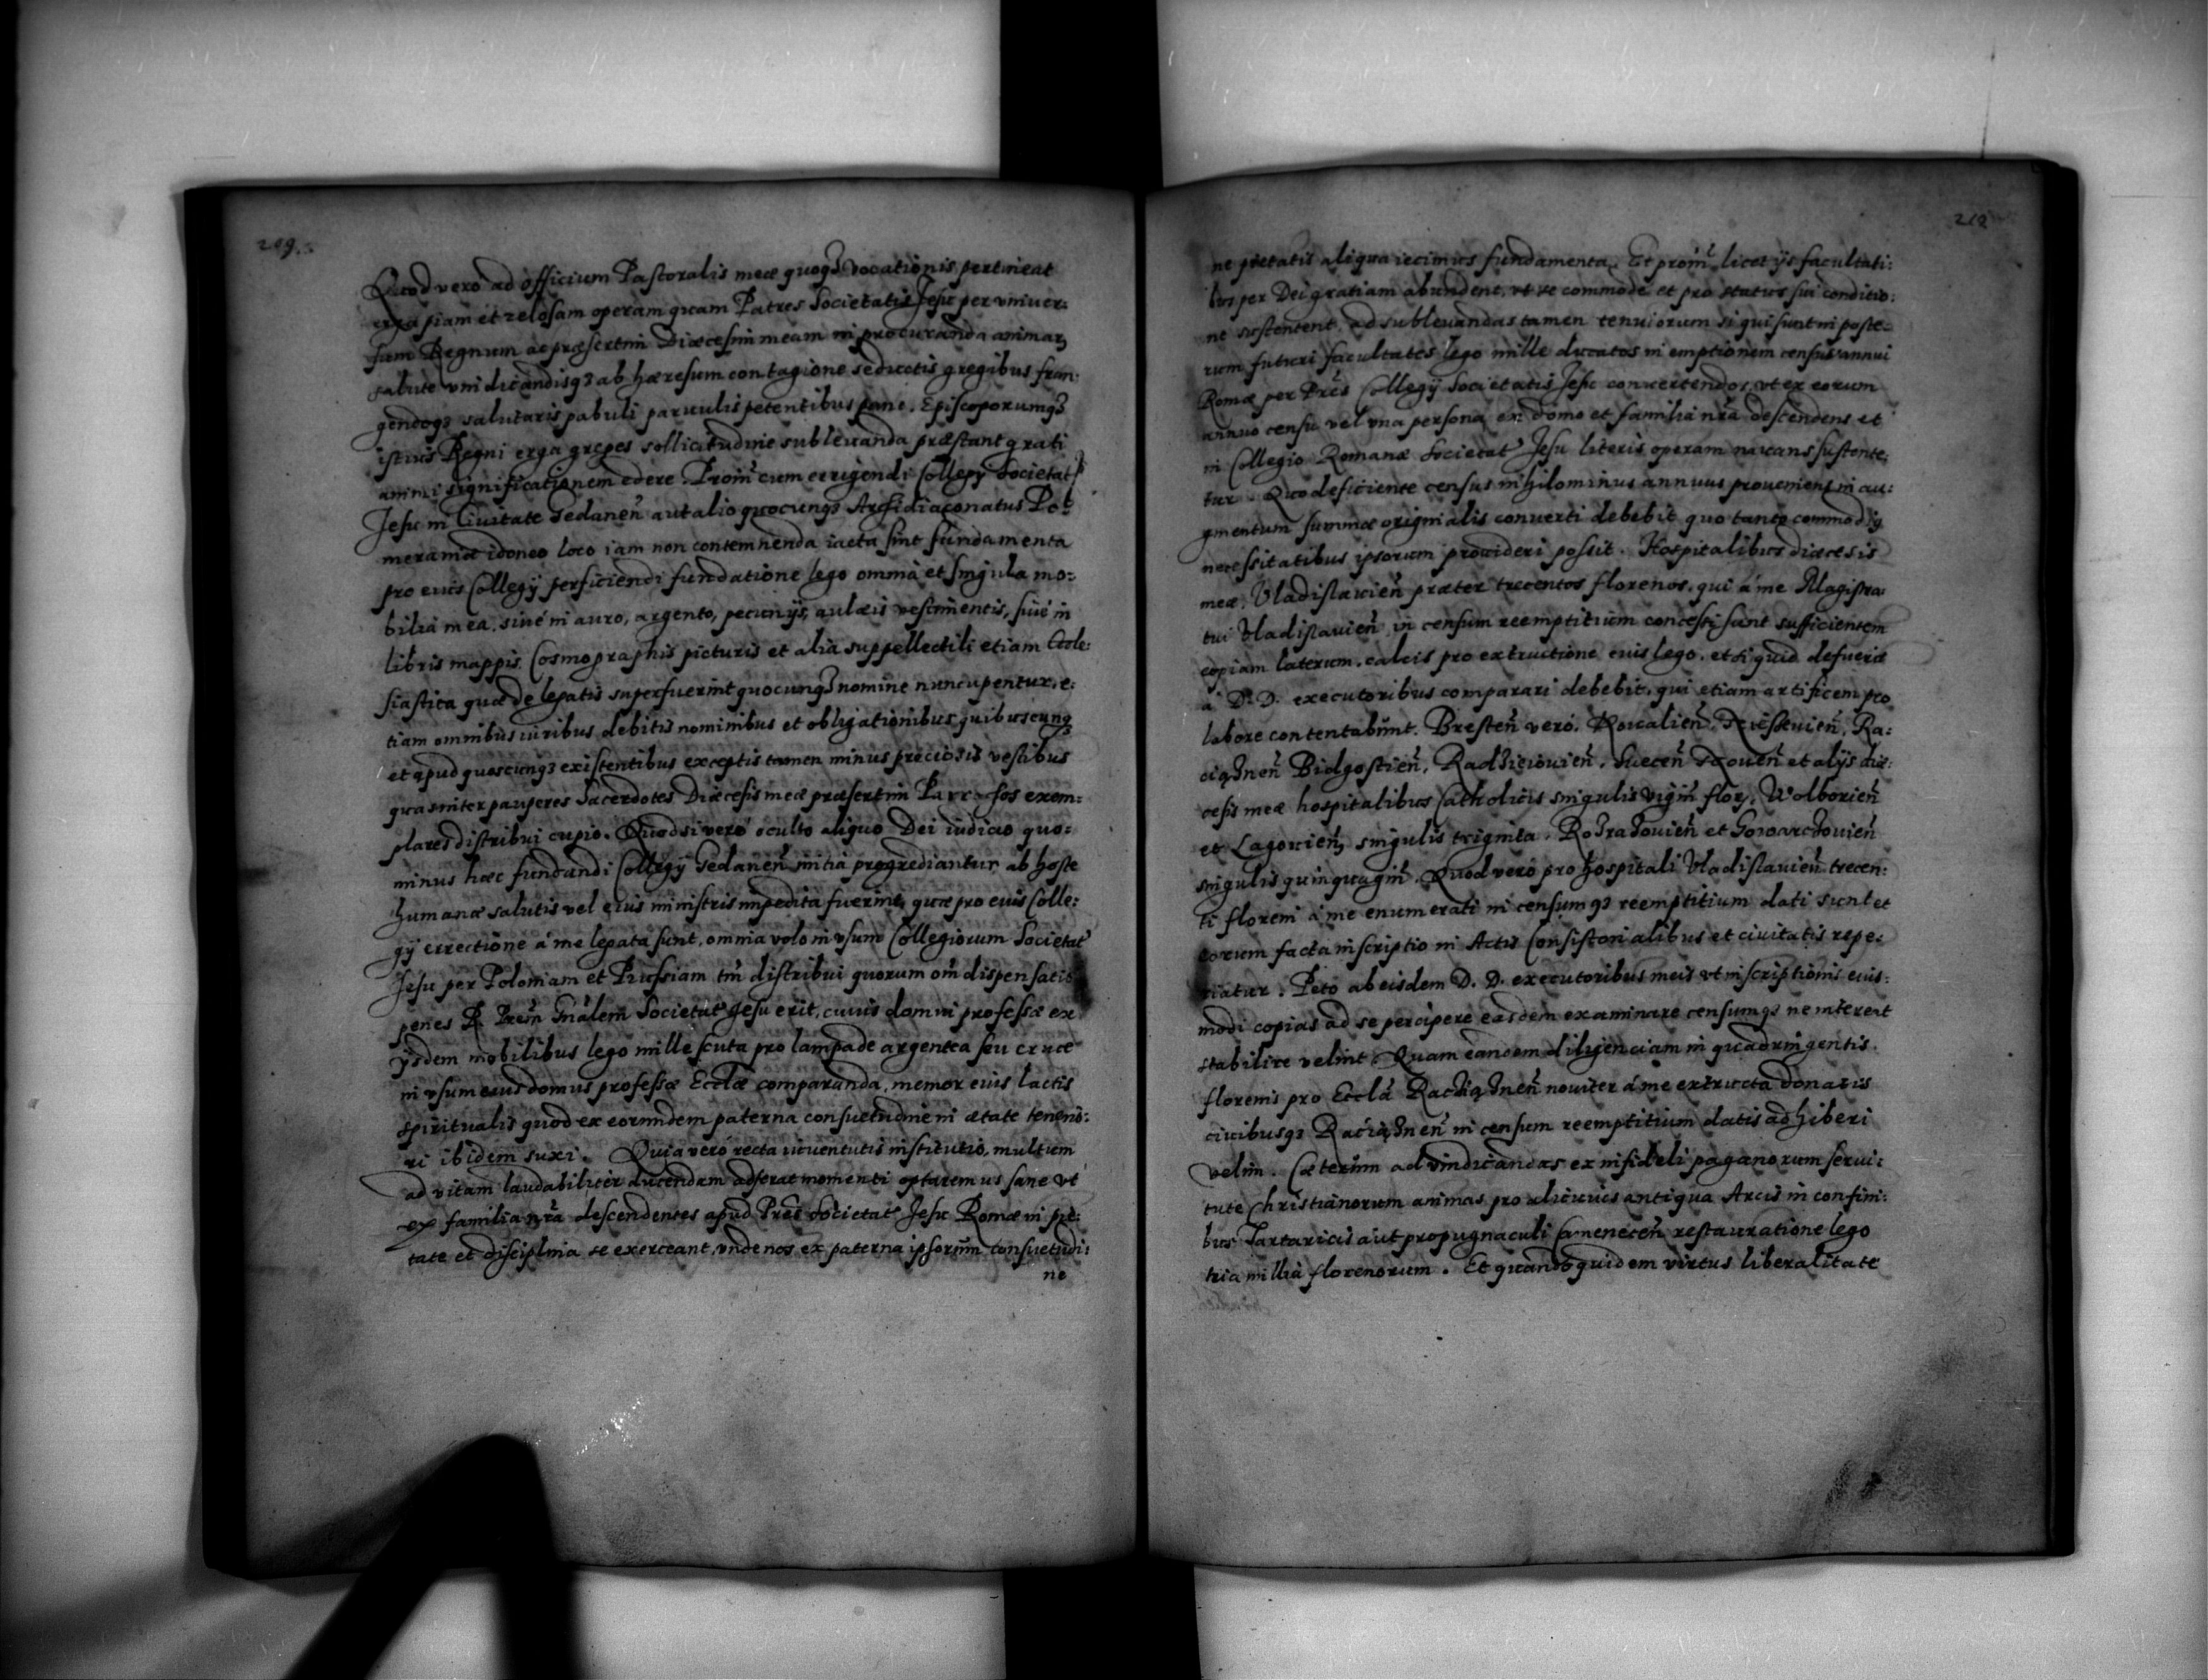 209.
Quod vero ad officium Pastoralis meæ quoq3 vocationis pertineat
erga piam et zelosam operam quam Patres Societatis Jesu per vniuer:
sum Regnum ac præsertim Diæcesim meam in procuranda animar
salute vindicandisq3 ab hæresum contagione seductis gregibus fran:
gendoq3 salutaris pabuli paruulis petentibus pane. Episcoporumq3
istius Regni erga greges sollicitudine subleuanda præstant grati
animi significationem edere. Proin cum errigendi Collegy Societat
Jesu in Ciuitate Gedanen aut alio quocunq3 Archidiaconatus Po:
meraniæ idoneo loco iam non contemnenda iacta sint fundamenta
pro euis Collegÿ perficiendi fundatione lego omnia et singula mo:
bilia mea, siue in auro, argento, pecunÿs, aulæis vestimentis, siue in
libris mappis Cosmographis picturis et alia suppellectili etiam Eccle:
siastica quæ de legatis superfuerint quocunq3 nomine nuncupentur, e:
tiam omnibus iuribus debitis nominibus et obligationibus quibuscunq3
et apud quoscunq3 existentibus exceptis tamen minus preciosis vestibus
quas inter pauperes Sacerdotes Diæcesis meæ præsertim Parochos exem:
plares distribui cupio. Quod si vero oculto aliquo Dei iudicio quo:
minus hæc fundandi Collegÿ Gedanen initia progrediantur, ab hoste
humanæ salutis vel eius ministris impedita fuerint, quæ pro euis Colle:
gÿ errectione á me legata sunt, omnia volo in vsum Collegiorum Societat
Jesu per Poloniam et Prussiam tm distribui quorum om dispensatio
penes R. Prem Gnalem Societat Jesu erit, cuius domui professæ ex
ÿsdem mobilibus lego mille scuta pro lampade argentea seu cruce
in vsum euis domus professæ Ecclæ comparanda, memor euis lactis
spiritualis quod ex eorundem paterna consuetudine in ætate tenerio:
ri ibidem suxi. Quia vero recta iuuentutis institutio, multum
ad vitam laudabiliter ducendam adferat momenti optaremus sane vt
ex familia nra descendentes apud Pres Societat Jesu Romæ in pie:
tate et disciplina se exerceant, vnde nos ex paterna ipsorum consuetudi:
ne
210
ne pietatis aliqua iecimus fundamenta. Et proin licet ijs facultati:
bus per Dei gratiam abundent, vt se commode et pro status sui conditio:
ne sustentent, ad subleuandas tamen tenuiorum si qui sunt in poste:
rum futuri facultates lego mille ducatos in emptionem census annui
Romæ per Pres Collegÿ Societatis Jesu conuertendos, vt ex eorum
annuo censu vel vna persona ex domo et familia nra descendens et
in Collegio Romanæ Societat Jesu literis operam nauans sustente:
tur. Quo deficiente census nihilominus annuus proueniens in au:
gmentum summæ originalis conuerti debebit quo tanto commodig
necessitatibus ipsorum prouideri possit. Hospitalibus diæcesis
meæ, Vladislauien præter trecentos florenos, qui á me Magistra:
tui Vladislauien in censum reemptitium concessi sunt sufficientem
copiam laterum, calcis pro extructione euis lego, et si quid defuerit
á D. D. executoribus comparari debebit, qui etiam artificem pro
labore contentabunt. Bresten vero, Koualien, Kruszuien, Ra:
ciq3nen Bidgostien, Rad3ieiouien, Suecen Kouen et alÿs diæ:
cesis meæ hospitalibus Catholicis singulis vigin flor. Wolborien
et Lagouien, singulis triginta. Ro3ra3ouien et Gowarc3ouien
singulis quinquagin. Quod vero pro hospitali Vladislauien trecen:
ti floreni á me enumerati in censumq3 reemptitium dati sunt et
eorum facta inscriptio in Actis Consistorialibus et ciuitatis repe:
riatur. Peto ab eisdem D. D. executoribus meis vt inscriptionis euis:
modi copias ad se percipere easdem examinare censumq3 ne intereat
stabilire velint. Quam eandem diligenciam in quadringentis
florenis pro Eccla Raciq3nen nouiter á me extructa donatis
ciuibusq3 Raciq3nen in censum reemptitium datis adhiberi
velim. Cæterum ad vindicandas ex infideli paganorum serui:
tute Christianorum animas pro alicuius antiqua Arcis in confini:
bus Tartaricis aut propugnaculi Camenecen restauratione lego
tria millia florenorum. Et quandoquidem virtus liberalitate